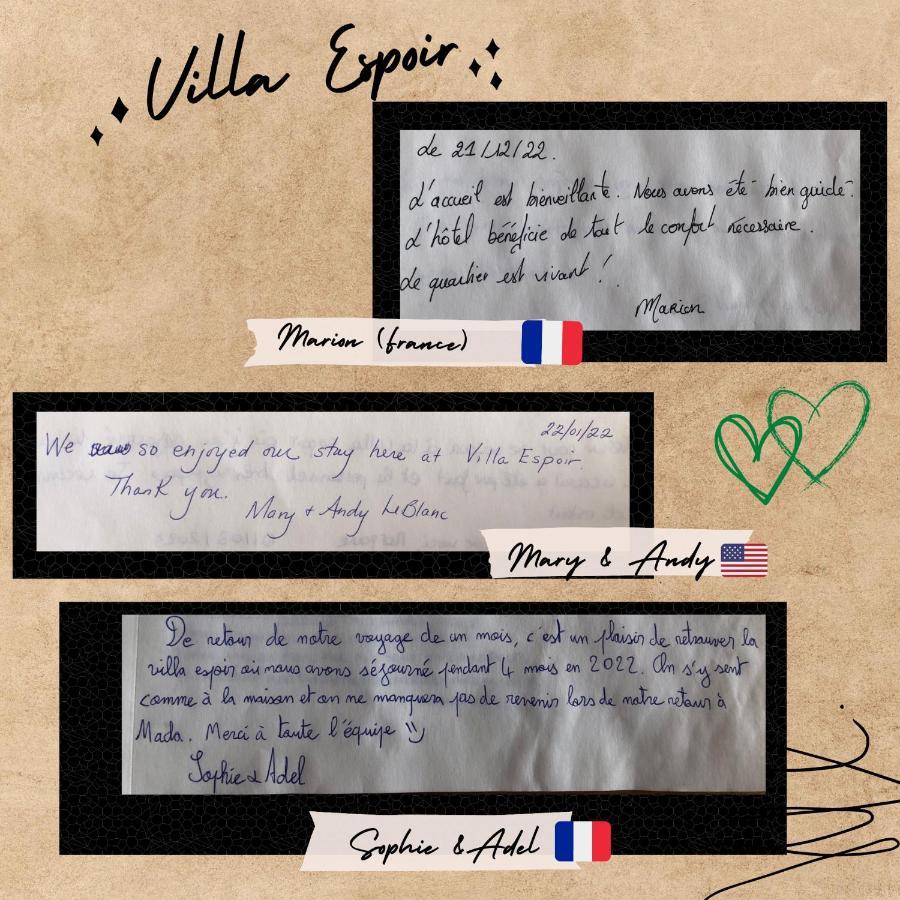 Villa Espoir
Le 21/12/22.
L'accueil est bienveillante. Nous avons été bien guidé.
L'hôtel bénéficie de tout le confort nécessaire.
Le quartier est vivant !
Marion
Marion (france)
22/01/22
We so enjoyed our stay here at Villa Espoir.
Thank you.
Mary & Andy LeBlanc
Mary & Andy
De retour de notre voyage de un mois, c'est un plaisir de retrouver la
villa espoir où nous avons séjourné pendant 4 mois en 2022. On s'y sent
comme à la maison et on ne manquera pas de revenir lors de notre retour à
Mada. Merci à toute l'équipe
Sophie & Adel
Sophie & Adel